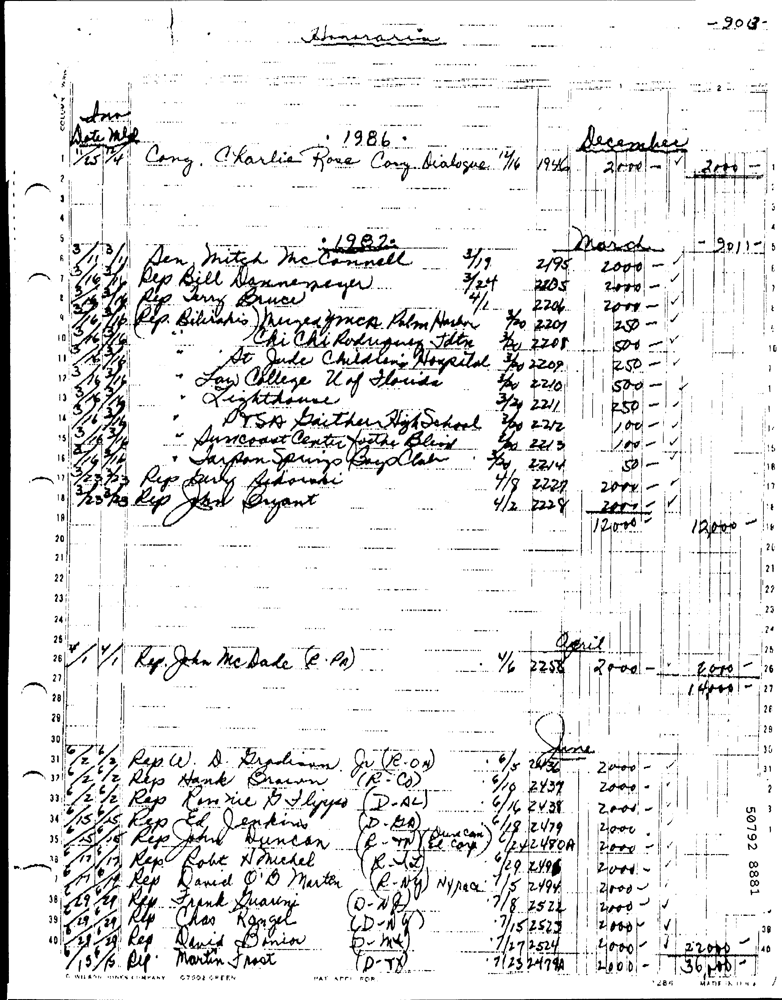 Honoraria
-908-
COLUMN
Inv
Date Mld
· 1986 ·
December
1 11/25 12/4 Cong. Charlie Rose Cong. Dialogue 12/16 1946 2000 - ✓ 2000 -
· 1987 ·
March - 9011 -
3/11 3/11 Sen Mitch McConnell 3/19 2195 2000 - ✓
3/16 3/16 Rep Bill Dannemeyer 3/24 2205 2000 - ✓
3/16 3/16 Rep Terry Bruce 4/1 2206 2000 - ✓
3/16 3/16 (Rep. Bilirakis) YMCA Palm Harbor 3/20 2207 250 - ✓
3/16 3/16 " Chi Chi Rodriguez Fdtn 3/20 2208 500 - ✓
3/16 3/16 " St Jude Children's Hospital 3/20 2209 250 - ✓
3/16 3/16 " Law College U of Florida 3/20 2210 500 - ✓
3/16 3/16 " Lighthouse 3/20 2211 250 - ✓
3/16 3/16 " PTSA Gaither High School 3/20 2212 100 - ✓
3/16 3/16 " Suncoast Center for the Blind 3/20 2213 100 - ✓
3/16 3/16 " Tarpon Springs Boys Club 3/20 2214 50 - ✓
3/23 3/23 Rep 4/8 2227 2000 - ✓
3/23 3/23 Rep John Bryant 4/2 2228 2000 - ✓
12000 - 12,000 -
April
4/1 4/1 Rep. John McDade (R-PA) 4/6 2258 2000 - 2000 -
14,000 -
June
6/2 6/2 Rep W. D. Gradison Jr (R-OH) 6/5 2436 2000 - ✓
6/2 6/2 Rep Hank Brown (R-CO) 6/10 2437 2000 - ✓
6/2 6/2 Rep Ronnie G Flippo (D-AL) 6/16 2438 2000 - ✓
6/15 6/15 Rep Ed Jenkins (D-GA) 6/18 2479 2000
6/15 6/15 Rep John Duncan (R-TN) (Duncan El Camp) 6/24 2480A 2000 - ✓
6/17 6/17 Rep. Robt H Michel (R-IL) 6/29 2496 2000 - ✓
6/17 6/17 Rep David O'B Martin (R-NY) 7/5 2494 2000 - ✓
6/29 6/29 Rep. Frank Guarini (D-NJ) 7/8 2522 2000 - ✓
6/29 6/29 Rep Chas Rangel (D-NY) 7/15 2523 2000 - ✓
6/29 6/29 Rep David Bonior D-MI) 7/27 2524 2000 - ✓ 22000 -
6/15 6/15 Rep. Martin Frost (D-TX) 7/23 2478A 2000 - 36,000 -
50792 8881
WILSON JONES COMPANY G7502 GREEN MADE IN U.S.A.